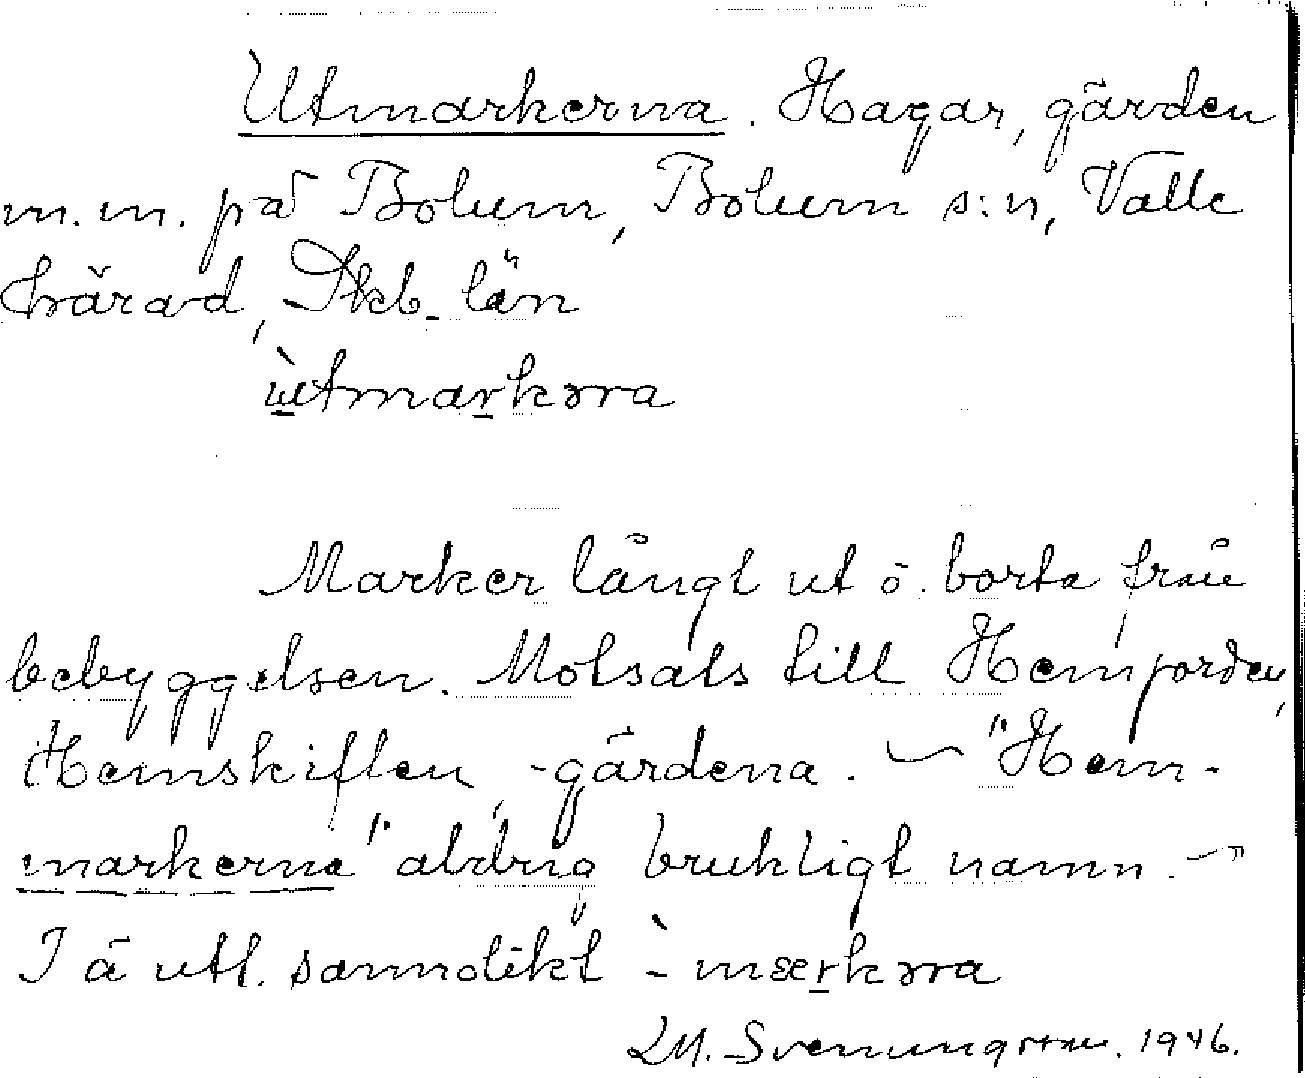 Utmarkerna. Hagar, gärden
m.m. på Bolum, Bolum s:n, Valle
härad, Skb. län
ùtmarkəra
Marker långt ut o. borta från
bebyggelsen. Motsats till Hemjorden,
Hemskiften, -gärdena. — "Hem-
markerna" aldrig brukligt namn. —
I ä utt. sannolikt `-mærkəra
Svenungsson. 1946.